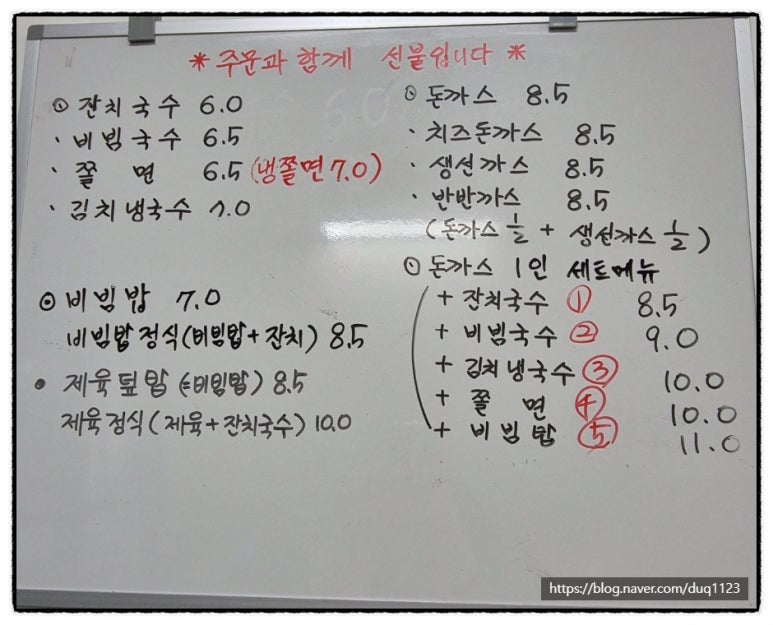 * 주문과 함께 선불입니다 *
⊙ 잔치국수 6.0
· 비빔국수 6.5
· 쫄 면 6.5 (냉쫄면 7.0)
· 김치냉국수 7.0
⊙ 비빔밥 7.0
비빔밥정식(비빔밥+잔치) 8.5
• 제육덮밥 (=비빔밥) 8.5
제육정식 (제육+잔치국수) 10.0
⊙ 돈까스 8.5
· 치즈돈까스 8.5
· 생선까스 8.5
· 반반까스 8.5
(돈까스 1/2 + 생선까스 1/2)
⊙ 돈까스 1인 세트메뉴
+ 잔치국수 ① 8.5
+ 비빔국수 ② 9.0
+ 김치냉국수 ③ 10.0
+ 쫄 면 ④ 10.0
+ 비빔밥 ⑤ 11.0
https://blog.naver.com/duq1123